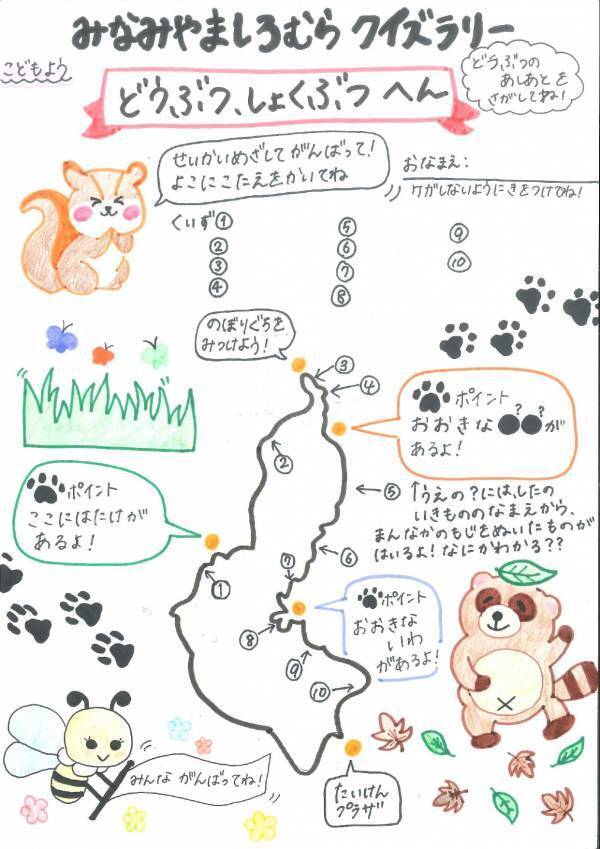 みなみやましろむら クイズラリー
こどもよう
どうぶつ、しょくぶつ へん
どうぶつの
あしあとを
さがしてね!
せいかいめざして がんばって!
よこにこたえをかいてね
おなまえ:
ケガしないようにきをつけてね!
くいず①
②
③
④
⑤
⑥
⑦
⑧
⑨
⑩
のぼりぐちを
みつけよう!
③
④
ポイント
おおきな●●が
? ?
あるよ!
②
⑤
↑うえの?には、したの
いきもののなまえから、
まんなかのもじをぬいたものが
はいるよ!なにかわかる??
ポイント
ここにはたけが
あるよ!
①
⑥
⑦
⑧
⑨
⑩
ポイント
おおきな
いわ
があるよ!
みんな がんばってね!
たいけん
プラザ